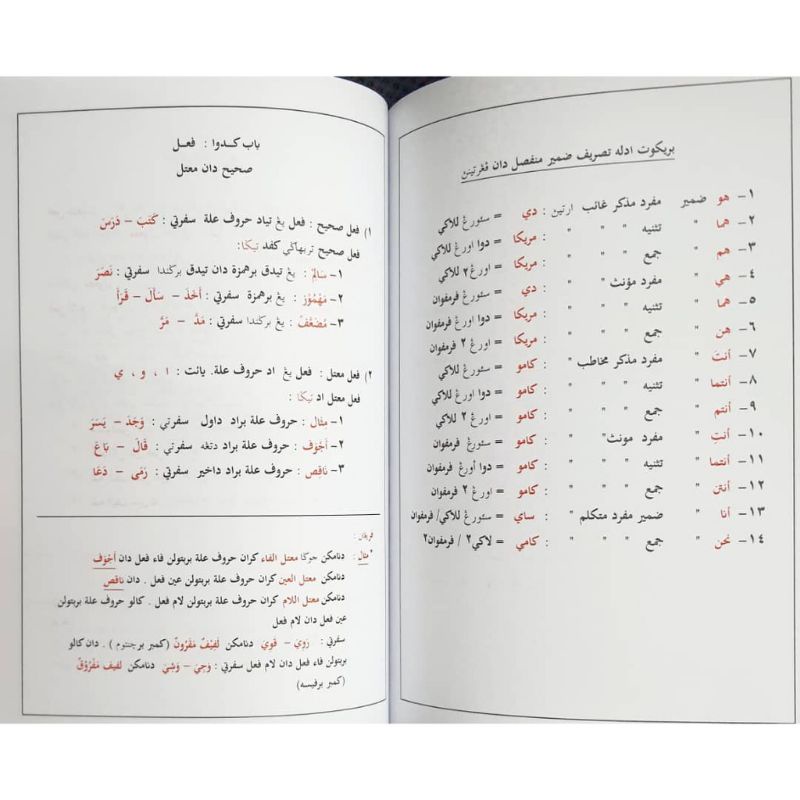 بريكوت ادله تصريف ضمير منفصل دان ڤڠرتينن
١- هو ضمير مفرد مذكر غائب ارتين : دي = سئورڠ للاكي
٢- هما " تثنيه " " : مريكا = دوا اورڠ للاكي
٣- هم " جمع " " : مريكا = اورڠ ٢ للاكي
٤- هي " مفرد مؤنث " : دي = سئورڠ فرمفوان
٥- هما " تثنيه " " : مريكا = دوا اورڠ فرمفوان
٦- هن " جمع " " : مريكا = اورڠ ٢ فرمفوان
٧- أنتَ " مفرد مذكر مخاطب " : كامو = سئورڠ للاكي
٨- أنتما " تثنيه " " : كامو = دوا اورڠ للاكي
٩- أنتم " جمع " " : كامو = اورڠ ٢ للاكي
١٠- أنتِ " مفرد مونث " " : كامو = سئورڠ فرمفوان
١١- أنتما " تثنيه " " : كامو = دوا أورڠ فرمفوان
١٢- أنتن " جمع " " : كامو = اورڠ ٢ فرمفوان
١٣- أنا " ضمير مفرد متكلم " : ساي = سئورڠ للاكي/ فرمفوان
١٤- نحن " جمع " " : كامي = لاكي٢ / فرمفوان٢
باب كدوا : فعل
صحيح دان معتل
١) فعل صحيح : فعل يڠ تياد حروف علة سفرتي : كَتَبَ – دَرَسَ
فعل صحيح تربهاڬي كفد تيڬا:
١- سَالِمٌ : يڠ تيدق برهمزة دان تيدق برڬندا سفرتي : نَصَرَ
٢- مَهْمُوْزٌ : يڠ برهمزة سفرتي : أَخَذَ – سَأَلَ – قَرَأَ
٣- مُضَعَّفٌ : يڠ برڬندا سفرتي : مَدَّ – مَرَّ
٢) فعل معتل : فعل يڠ اد حروف علة. يائت : ا ، و ، ي
فعل معتل اد تيڬا :
١- مثال : حروف علة براد داول سفرتي : وَجَدَ – يَسَرَ
٢- أجْوَف : حروف علة براد دتڠه سفرتي : قَالَ – بَاعَ
٣- ناقِص : حروف علة براد داخير سفرتي : رَمَى – دَعَا
* مثال : دنامكن جوڬا معتل الفاء كران حروف علة بربتولن فاء فعل دان أجْوَف
دنامكن معتل العين كران حروف علة بربتولن عين فعل . دان ناقِص
دنامكن معتل اللام كران حروف علة بربتولن لام فعل . كالو حروف علة بربتولن
عين فعل دان لام فعل
سفرتي : رَوِيَ – قَوِيَ دنامكن لَفِيْفٌ مَقْرُونٌ (كمبر برجنتوم ) . دان كالو
بربتولن فاء فعل دان لام فعل سفرتي : وَجِيَ – وَشِيَ دنامكن لفيف مَفْرُوْقٌ
(كمبر برفيسه)